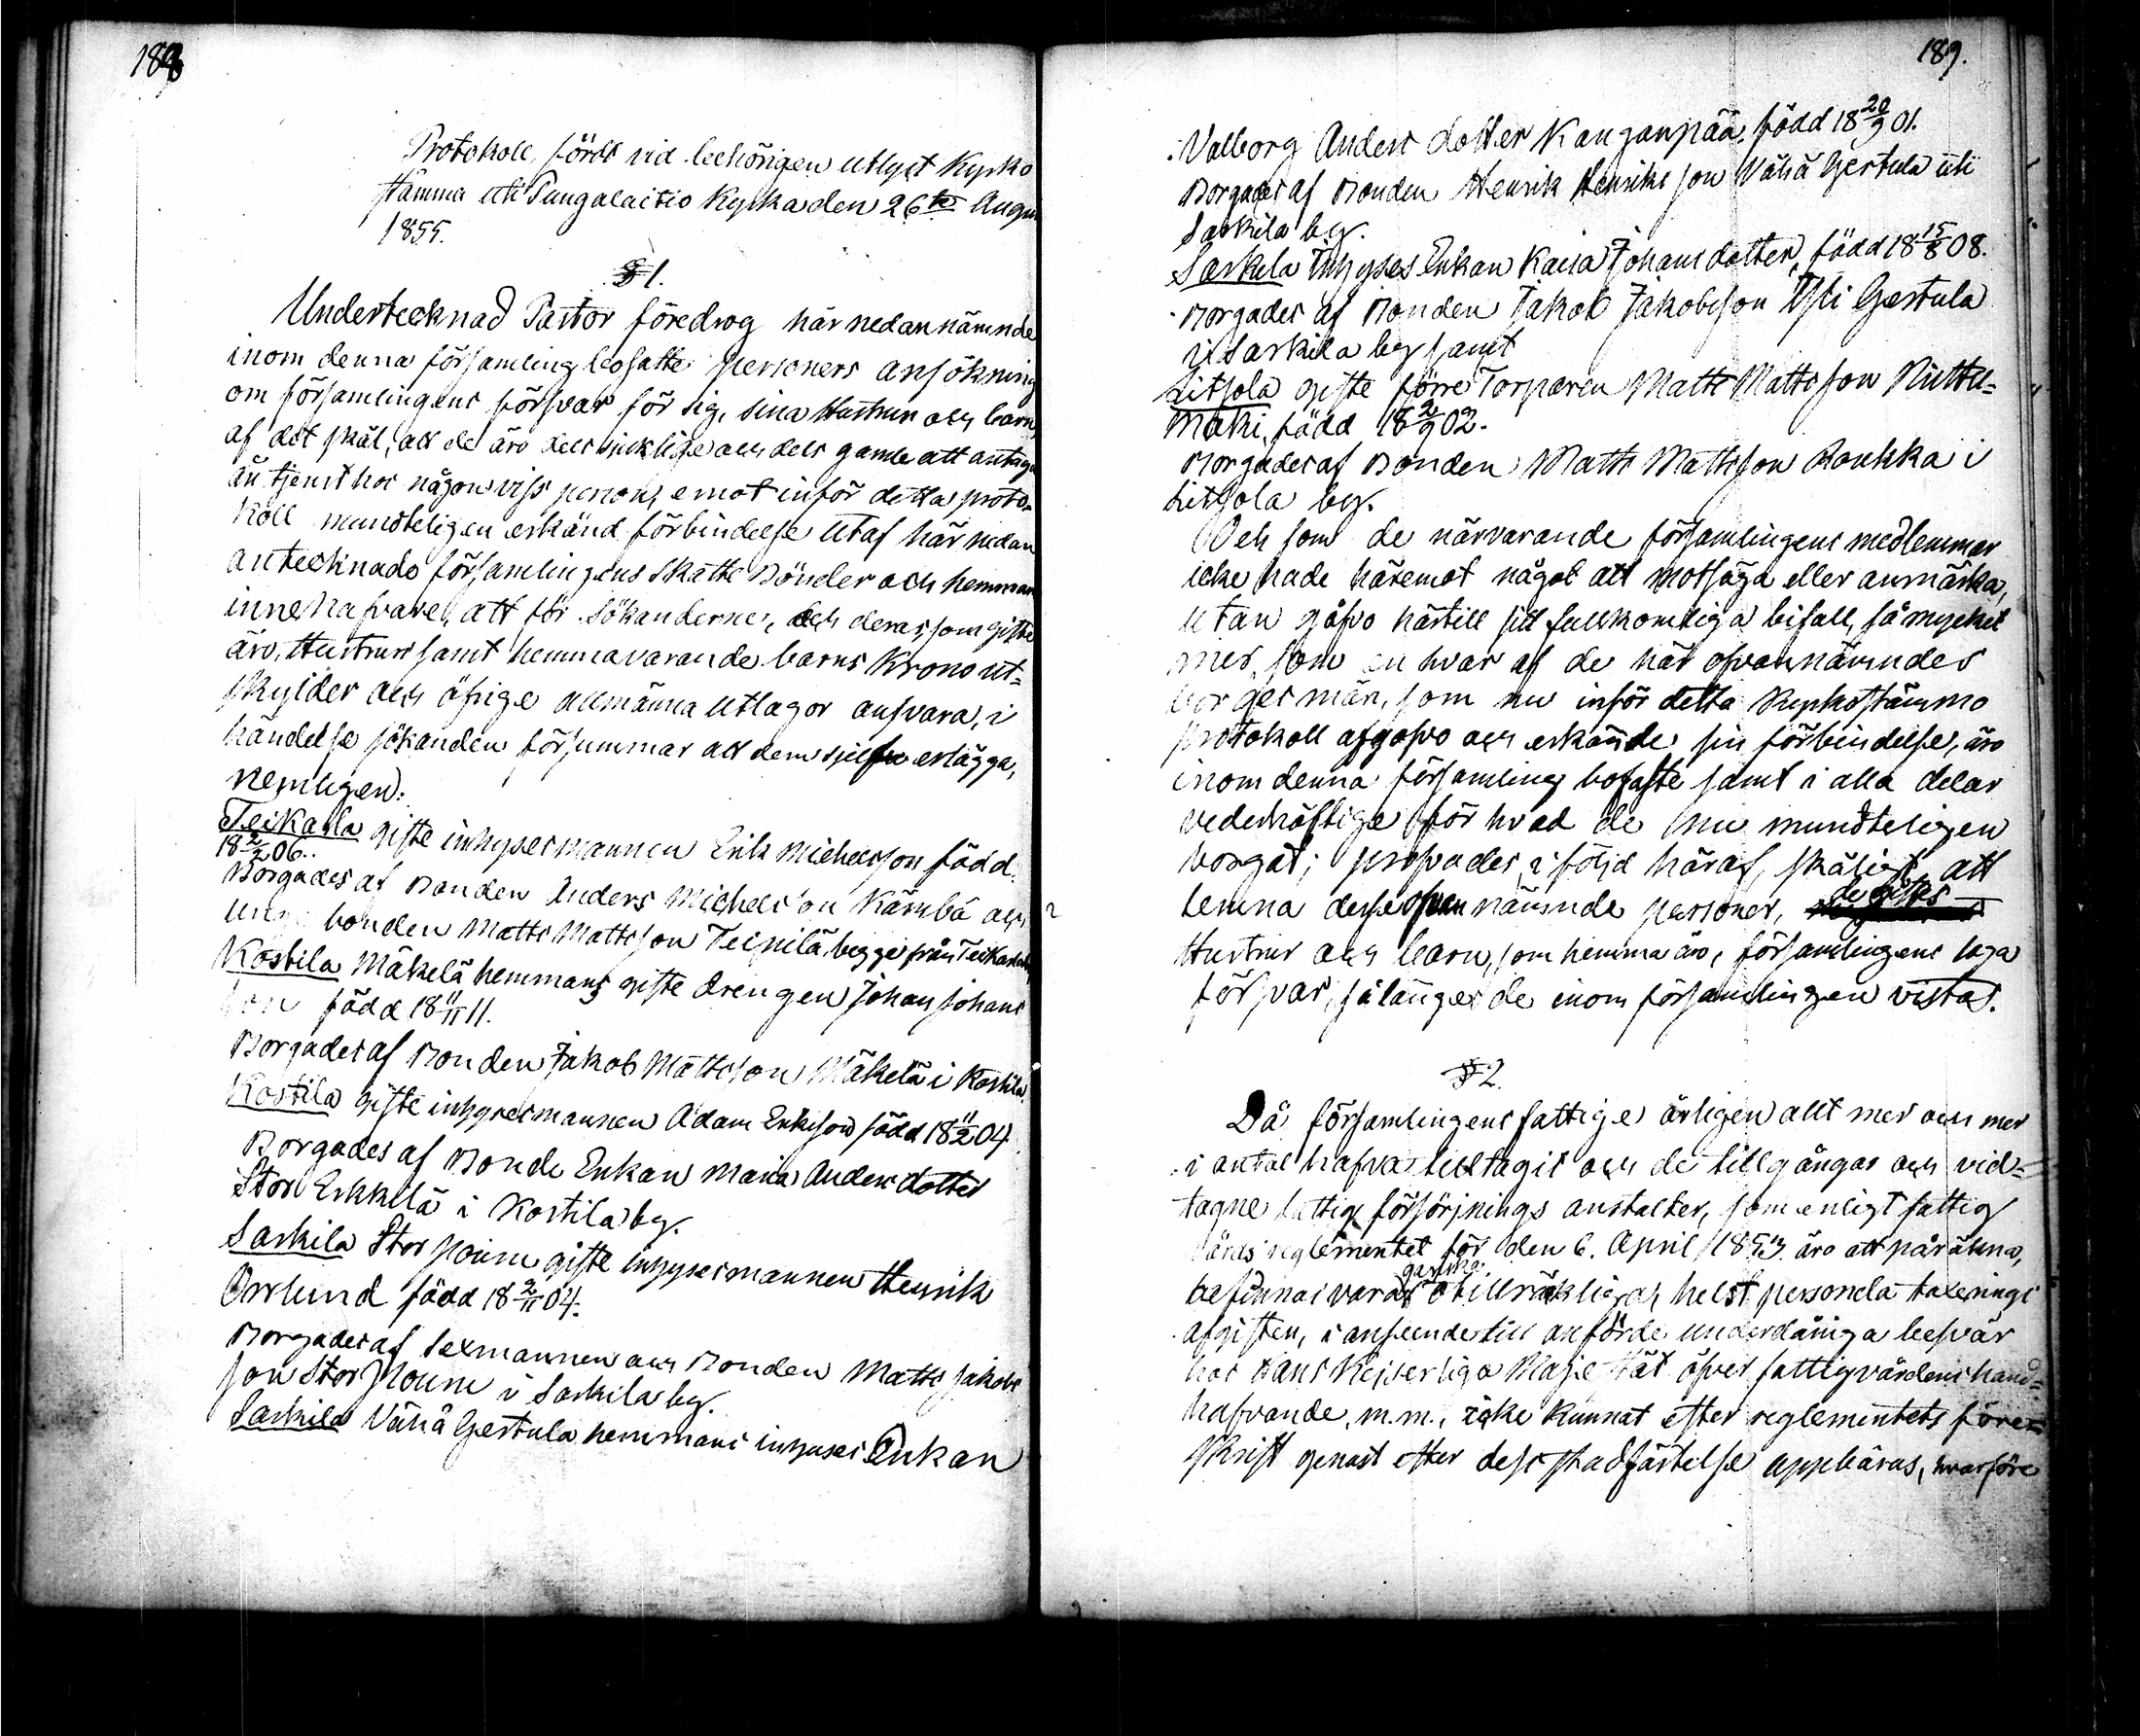 188
Protokoll, fördt vid behörigen utlyst Kyrko
stämma uti Pungalaitio Kyrka den 26te Augus
1855.
§ 1.
Undertecknad Pastor föredrog här nedannämnde
inom denna församling bosatte personers ansökning
om församlingens försvar för sig, sina Hustrur och barn,
af det skäl, att de äro dels sjuklige och dels gamle att antaga
än tjenst hos någon viss person, emot inför detta proto-
koll mundteligen erkänd förbindelse utaf här nedan
antecknade församlingens Skatte Bönder och hemmans
innehafvare, att för sökanderne, och deras, som gifte
äro, Hustrur samt hemmavarande barns Krono ut-
skylder och öfrige allmänna utlagor ansvara, i
händelse sökanden försummar att dem sjelfve erlägga,
nemligen:
Teikarla gifte inhysesmannen Erik Michelsson född
18 2/2 06.
Borgades af Bonden Anders Michelsson Kämbä och
unge bonden Matts Mattsson Teinilä begge från Teikarla by
Kostila Mäkelä hemmans gifte drengen Johan Johans
son född 18 11/11 11.
Borgades af Bonden Jakob Mattsson Mäkelä i Kostila
Kostila gifte inhysesmannen Adam Eriksson född 18 11/2 04.
Borgades af Bonde Enkan Maria Anders dotter
Stor Erkkilä i Kostila by.
Sarkila Stor Jouru gifte inhysesmannen Henrik
Orrlund född 18 2/11 04.
Borgades af Sexmannen och Bonden Matts Jakobs
son Stor Jouru i Sarkila by.
Sarkila Vähä Gestula hemmans inhyses Enkan
189.
Valborg Anders dotter Kanganpää, född 18 20/9 01.
Borgades af Bonden Henrik Henriksson Vähä Gestula uti
Sarkila by.
Sarkila Inhyses Enkan Kaisa Johansdotter, född 18 15/8 08.
Borgades af Bonden Jakob Jakobsson Ylli Gestula
i Sarkila by samt
Litsola gifte förre Torparen Matts Mattsson Niittu-
mäki, född 18 2/9 02.
Borgades af Bonden Matts Mattsson Roukka i
Litsola by.
Och som de närvarande församlingens medlemmar
icke hade häremot något att motsäga eller anmärka,
utan gåfvo härtill sitt fullkomliga bifall, så mycket
mer, som en hvar af de här ofvannämndes
borgesmän, som nu inför detta Kyrkostämmo
protokoll afgofvo och erkände sin förbindelse, äro
inom denna församling bofaste samt i alla delar
vederhäftige för hvad de nu mundteligen
borgat; profvades, i följd häraf, skäligt att
lemna desse ofvannämnde personer, de giftes
Hustrur och barn, som hemma äro, församlingens laga
försvar, så länge de inom församlingen vistas.
§ 2.
Då församlingens fattige årligen allt mer och mer
i antal hafva tilltagit och de tillgångar och vid-
tagne fattig försörjnings anstalter, som enligt fattig
vårds reglementet för den 6. April 1853 äro att påräkna,
befinnas vara ganska otillräckliga, helst personela taxerings
afgiften, i anseende till anförde underdåniga besvär
hos Hans Kejserliga Majestät öfver fattigvårdens hand-
hafvande, m.m., icke kunnat efter reglementets före-
skrift genast efter dess stadfästelse uppbäras, hvarföre